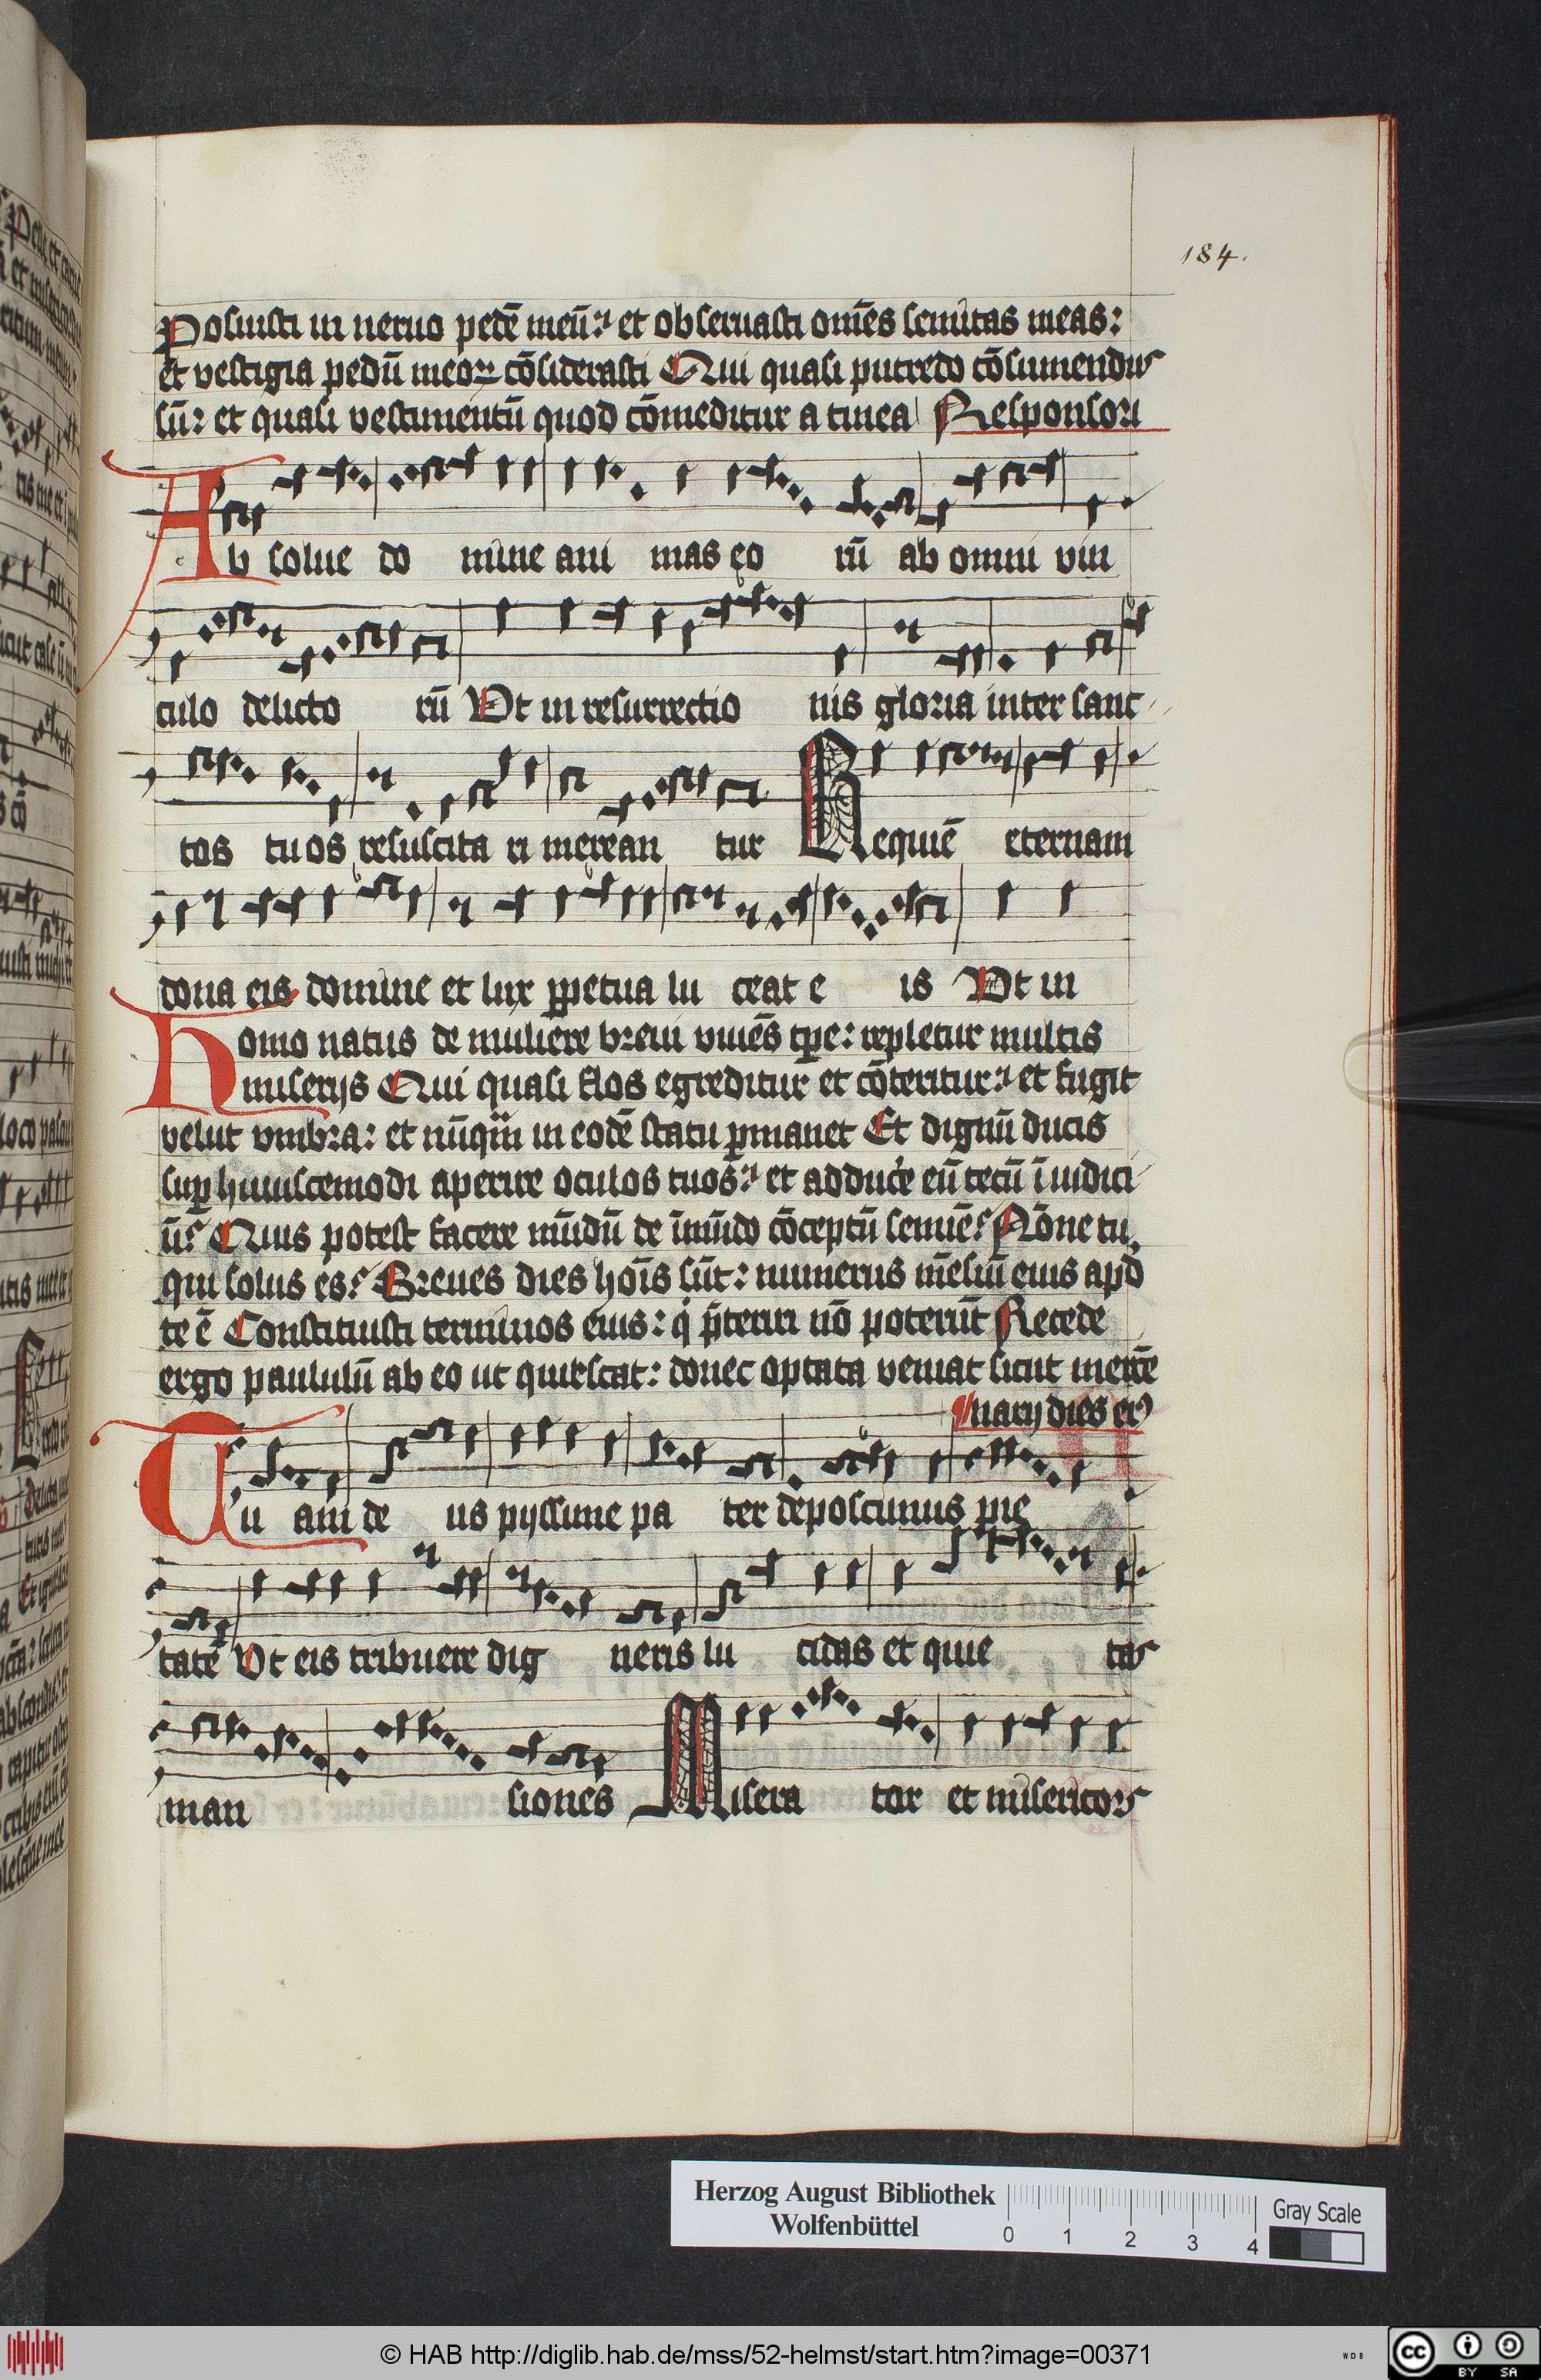 184.
Posuisti in neruo pedē meū: et obseruasti om̄es semitas meas:
et vestigia pedū meoꝝ cōsiderasti Qui quasi putredo cōsumendus
sū: et quasi vestimentū quod cōmeditur a tinea Responsori
Ab solue do mine ani mas eo rū ab omni vin
culo delicto rū Vt in resurrectio nis gloria inter sanc
tos tuos resuscita ri merean tur Requiē eternam
dona eis domine et lux ꝑpetua lu ceat e is Vt in
Homo natus de muliere breui viuēs tꝑe: repletur multis
miserijs Qui quasi flos egreditur et cōteritur: et fugit
velut vmbra: et nūqm̄ in eodē statu ꝑmanet Et dignū ducis
suꝑ huiuscemodi aperire oculos tuos: et adducere eū tecū ī iudici
ū? Quis potest facere mūdū de īmūdo cōceptū semīe? Nōne tu
qui solus es? Breues dies hoīs sūt: numerus mēsiū eius apd
te ē Constituisti terminos eius: q p̄teriri nō poterūt Recede
ergo paululū ab eo ut quiescat: donec optata veniat sicut mercē
narij dies eiꝰ
Tu am de us pijssime pa ter deposcimus pie
tatē Vt eis tribuere dig neris lu cidas et quie tas
man siones Misera tor et misericors
Herzog August Bibliothek
Wolfenbüttel
0 1 2 3 4
Gray Scale
© HAB http://diglib.hab.de/mss/52-helmst/start.htm?image=00371
WDB
cc BY SA